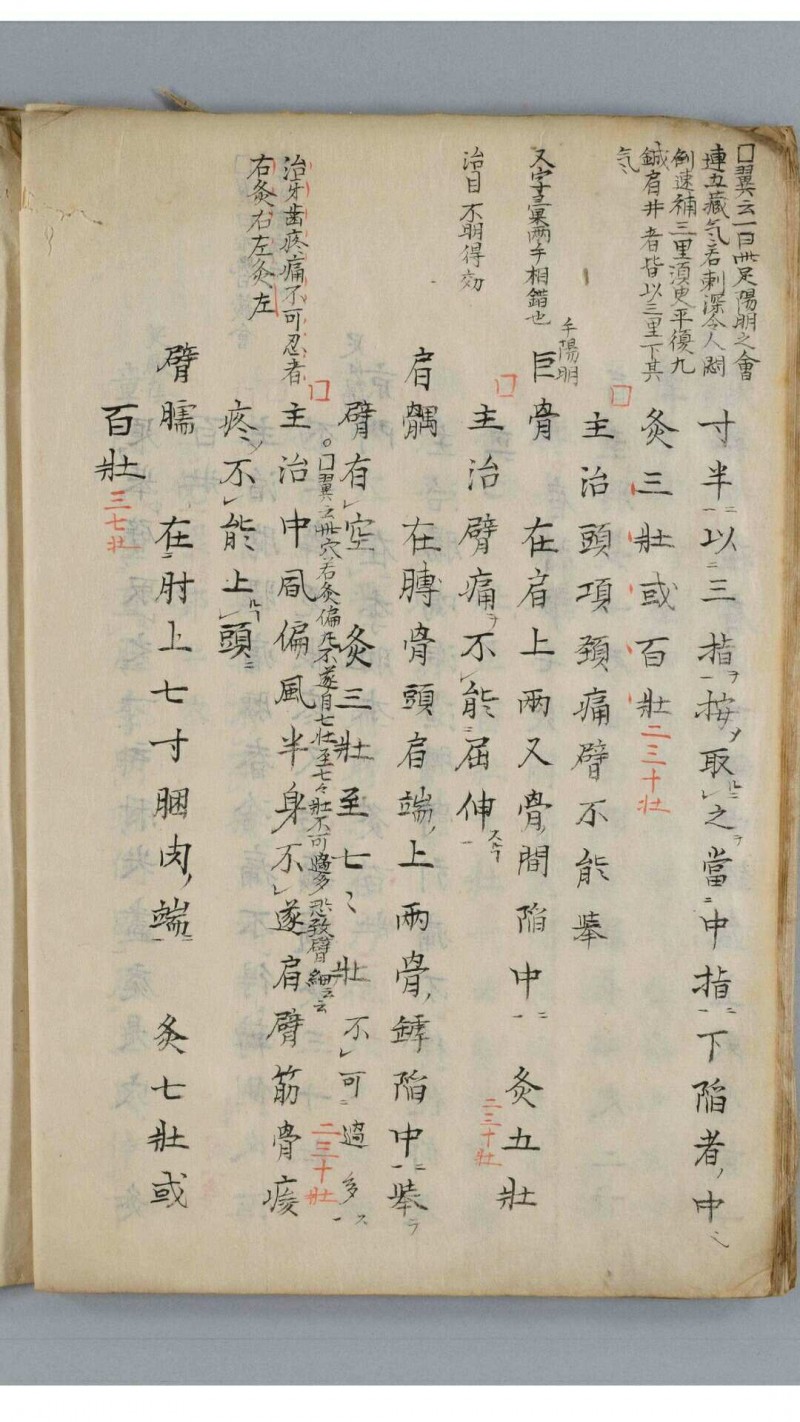 口翼云一曰此足陽明之會
連五藏气若刺深令人悶
倒速補三里須臾平復凡
鍼肩井者皆以三里下其
气
寸半以三指按取之當中指下陷者中
灸三壯或百壯二三十壯
主治頭項頚痛臂不能舉
手陽明
又字彙兩手相錯也
巨骨 在肩上兩叉骨間陷中 灸五壯
治目不明得効
主治臂痛不能屈伸 二三十壯
肩髃 在膊骨頭肩端上兩骨鏬陷中舉
臂有空 灸三壯至七々壯不可過多
口翼云此穴若灸偏風不遂自七壯至七々壯不可過多恐致臂細云云
二三十壯
治牙齒疼痛不可忍者
右灸右左灸左
主治中風偏風半身不遂肩臂筋骨痠
疼不能上頭
臂臑 在肘上七寸䐃肉端 灸七壯或
百壯三七壯